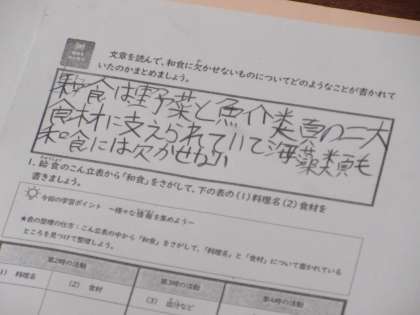 文章を読んで、和食に欠かせないものについてどのようなことが書かれて
いたのかまとめましょう。
和食は野菜と魚介類の二大
食材に支えられていて海藻類も
和食には欠かせない
1. 給食のこん立表から「和食」をさがして、下の表の(1)料理名(2)食材を
書きましょう。
今回の学習ポイント ～様々な情報を集めよう～
★表の整理の仕方：こん立表の中から「和食」をさがし、「料理名」と「食材」について書かれている
ところを見つけて整理しよう。
第2時の活動
第3時の活動
第4時の活動
(1) 料理名
(2) 食材
(3)